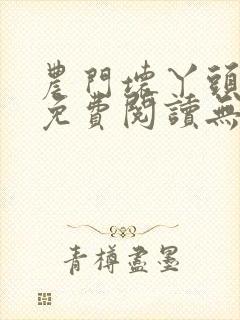 農門壞丫頭
免費閱讀無
青樽盡墨